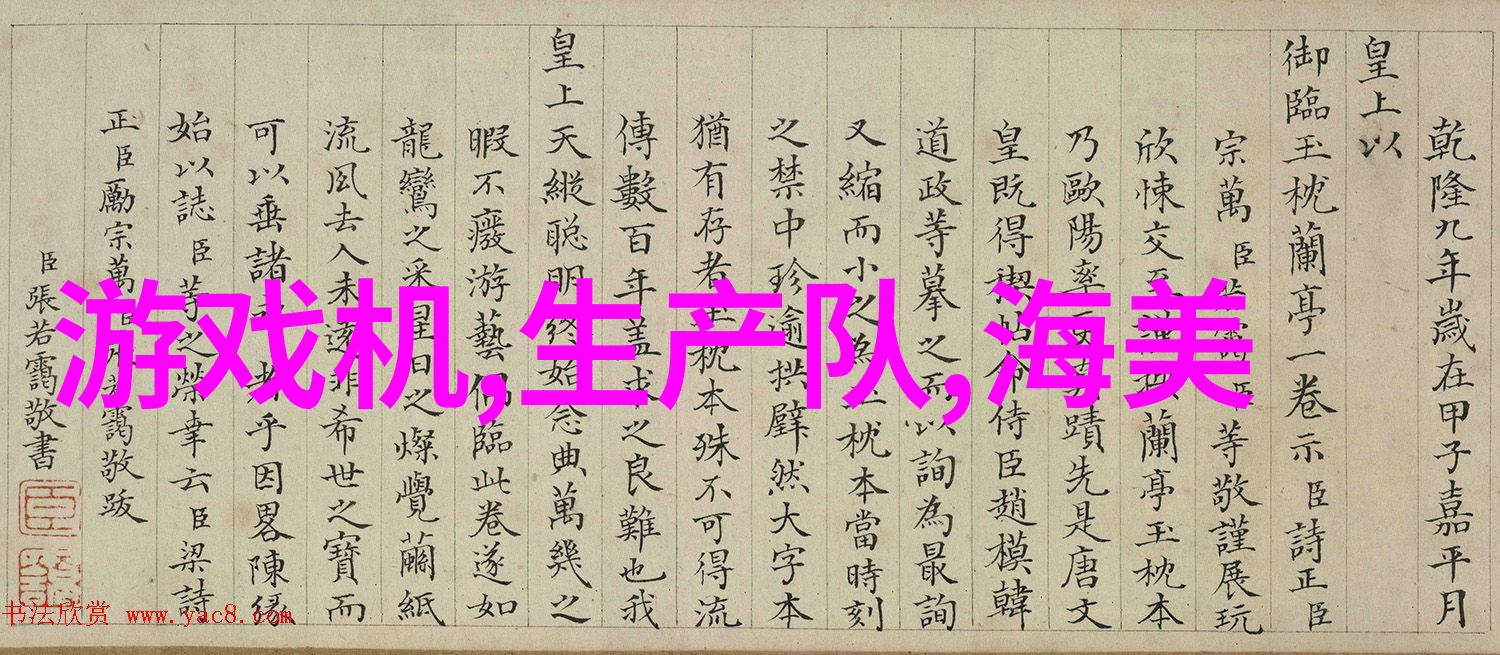 乾隆九年歲在甲子嘉平月
皇上以
御臨玉枕蘭亭一卷示臣詩正臣
宗萬臣若靄臣等敬謹展玩
欣悚交至蘭亭玉枕本
乃歐陽率更蹟先是唐文
皇既得禊帖命侍臣趙模韓
道政等摹之而以詢為最詢
又縮而小之為玉枕本當時刻
之禁中珍逾拱璧然大字本
猶有存者玉枕本殊不可得流
傳數百年蓋求之良難也我
皇上天縱聰明終始念典萬幾之
暇不癈游藝偶臨此卷遂如
龍鸞之采星日之燦覺繭紙
流風去人未遠非希世之寶而
可以垂諸乎因畧陳緣
始以誌臣等之榮幸云臣梁詩
正臣勵宗萬臣張若靄敬跋
臣張若靄敬書
游戏机,生产队,海美
书法欣赏 www.yac8.com